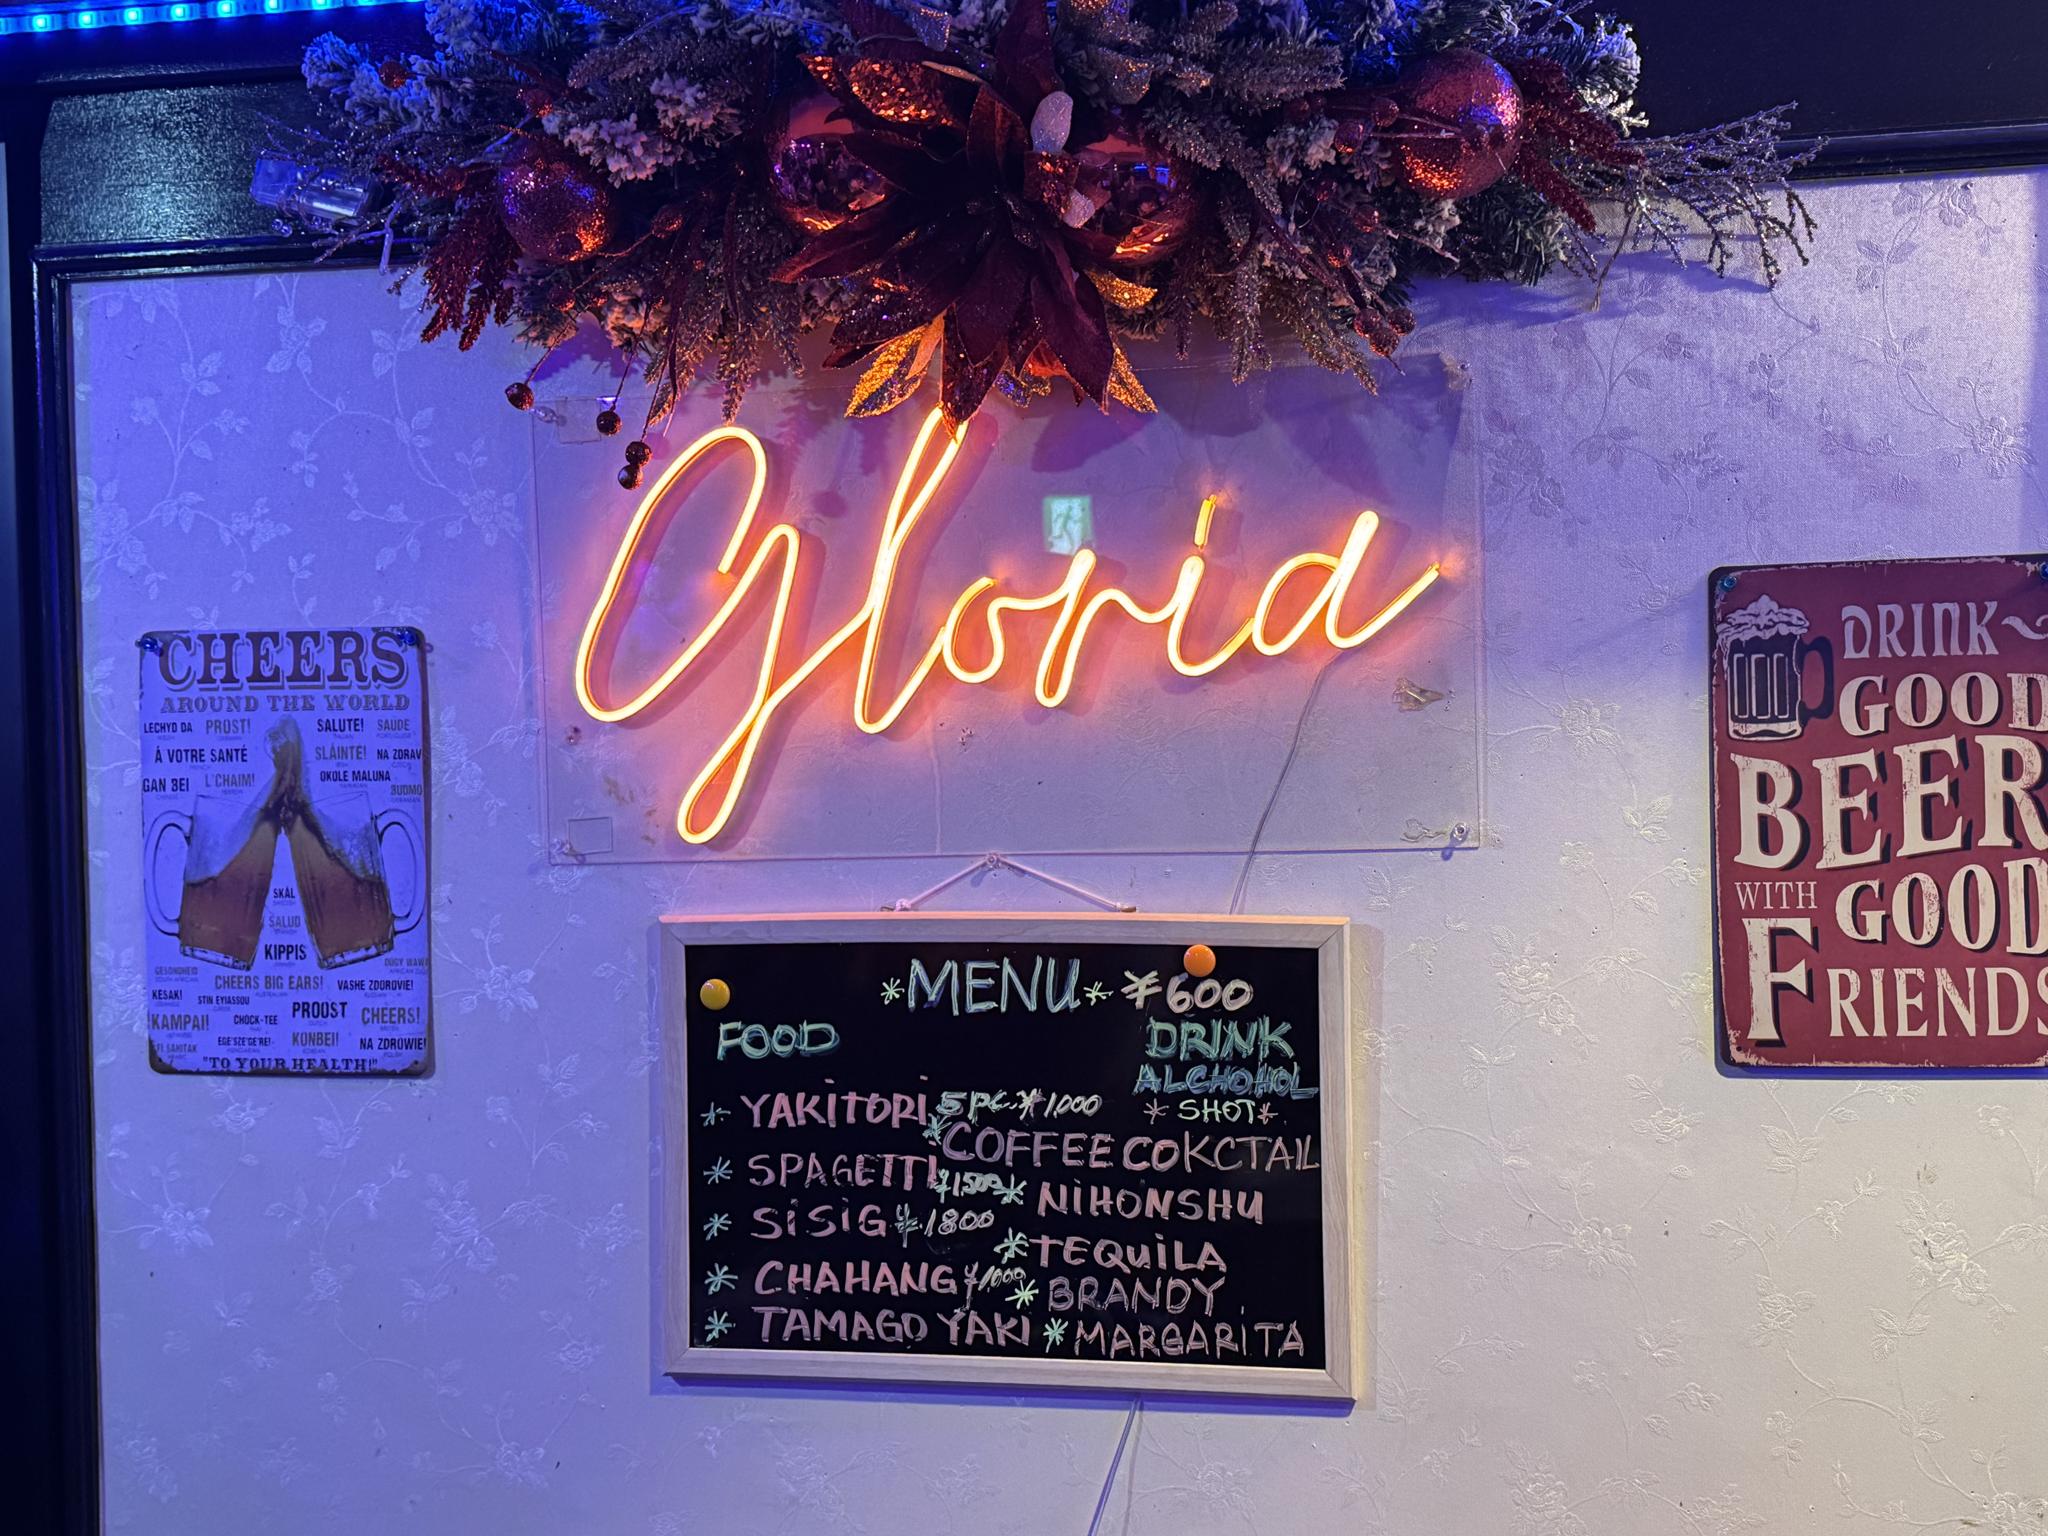 Gloria
CHEERS
AROUND THE WORLD
LECHYD DA PROST! SALUTE! SAÚDE
Á VOTRE SANTÉ SLÁINTE! NA ZDRAV
GAN BEI L'CHAIM! OKOLE MALUNA
BUDMO
SKÅL
SALUD
KIPPIS
GESONDHEID
CHEERS BIG EARS!
KESAKI STIN EYIASSOU PROOST VASHE ZDOROVIE!
KAMPAI! CHOCK-TEE CHEERS!
EGE'SZE'GE'RE! KONBEI! NA ZDROWIE!
"TO YOUR HEALTH!"
*MENU* ¥600
FOOD
* YAKITORI 5 PC. ¥1,000
* SPAGETTI ¥1500
* SISIG ¥1800
* CHAHANG ¥1000
* TAMAGO YAKI
DRINK
ALCHOHOL
* SHOT *
* COFFEE COKCTAIL
* NIHONSHU
* TEQUILA
* BRANDY
* MARGARITA
DRINK
GOOD
BEER
WITH GOOD
FRIENDS